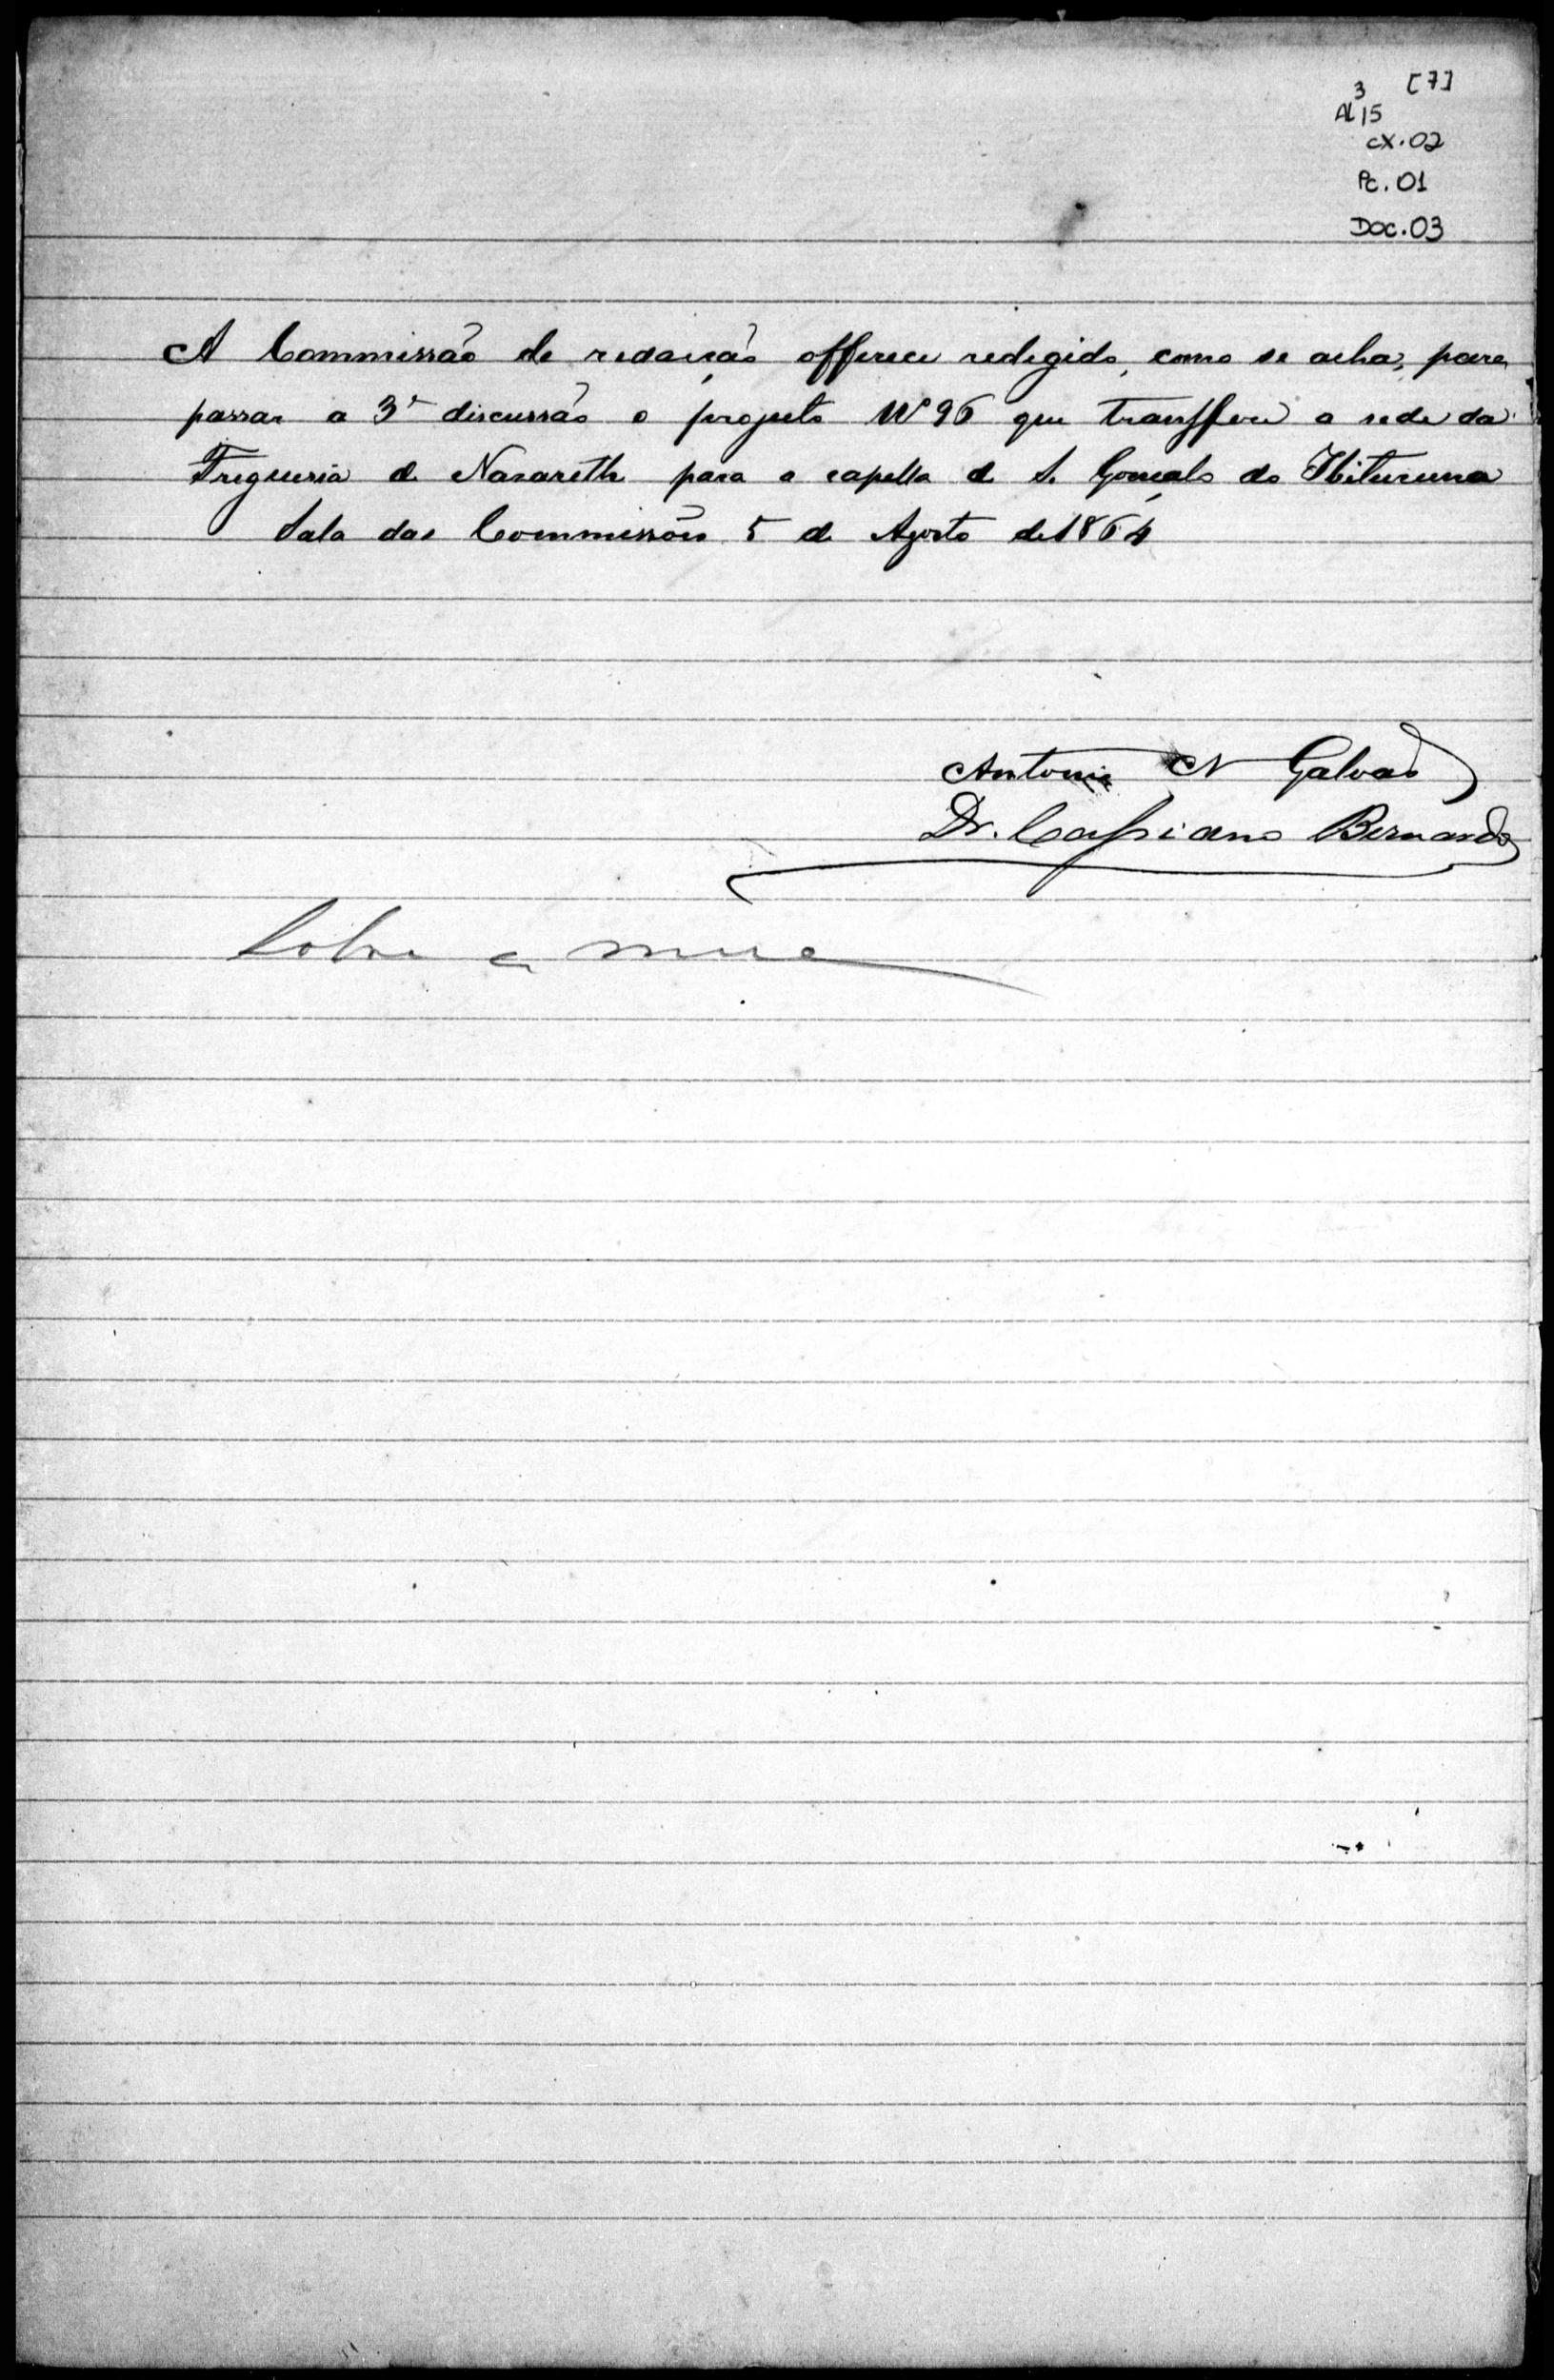 3 [7]
AL 15
cx.02
Pc.01
Doc.03
A Commissão de redacção offerece redegido, como se acha, para
passar a 3ª discussão o projecto Nº 96 que transfere a sede da
Freguesia de Nazareth para a capella de S. Gonçalo do Ibituruna
Sala das Commissões 5 de Agosto de 1864
Antonio N Galvão
Dr. Cassiano Bernardo
Sobre a mesa